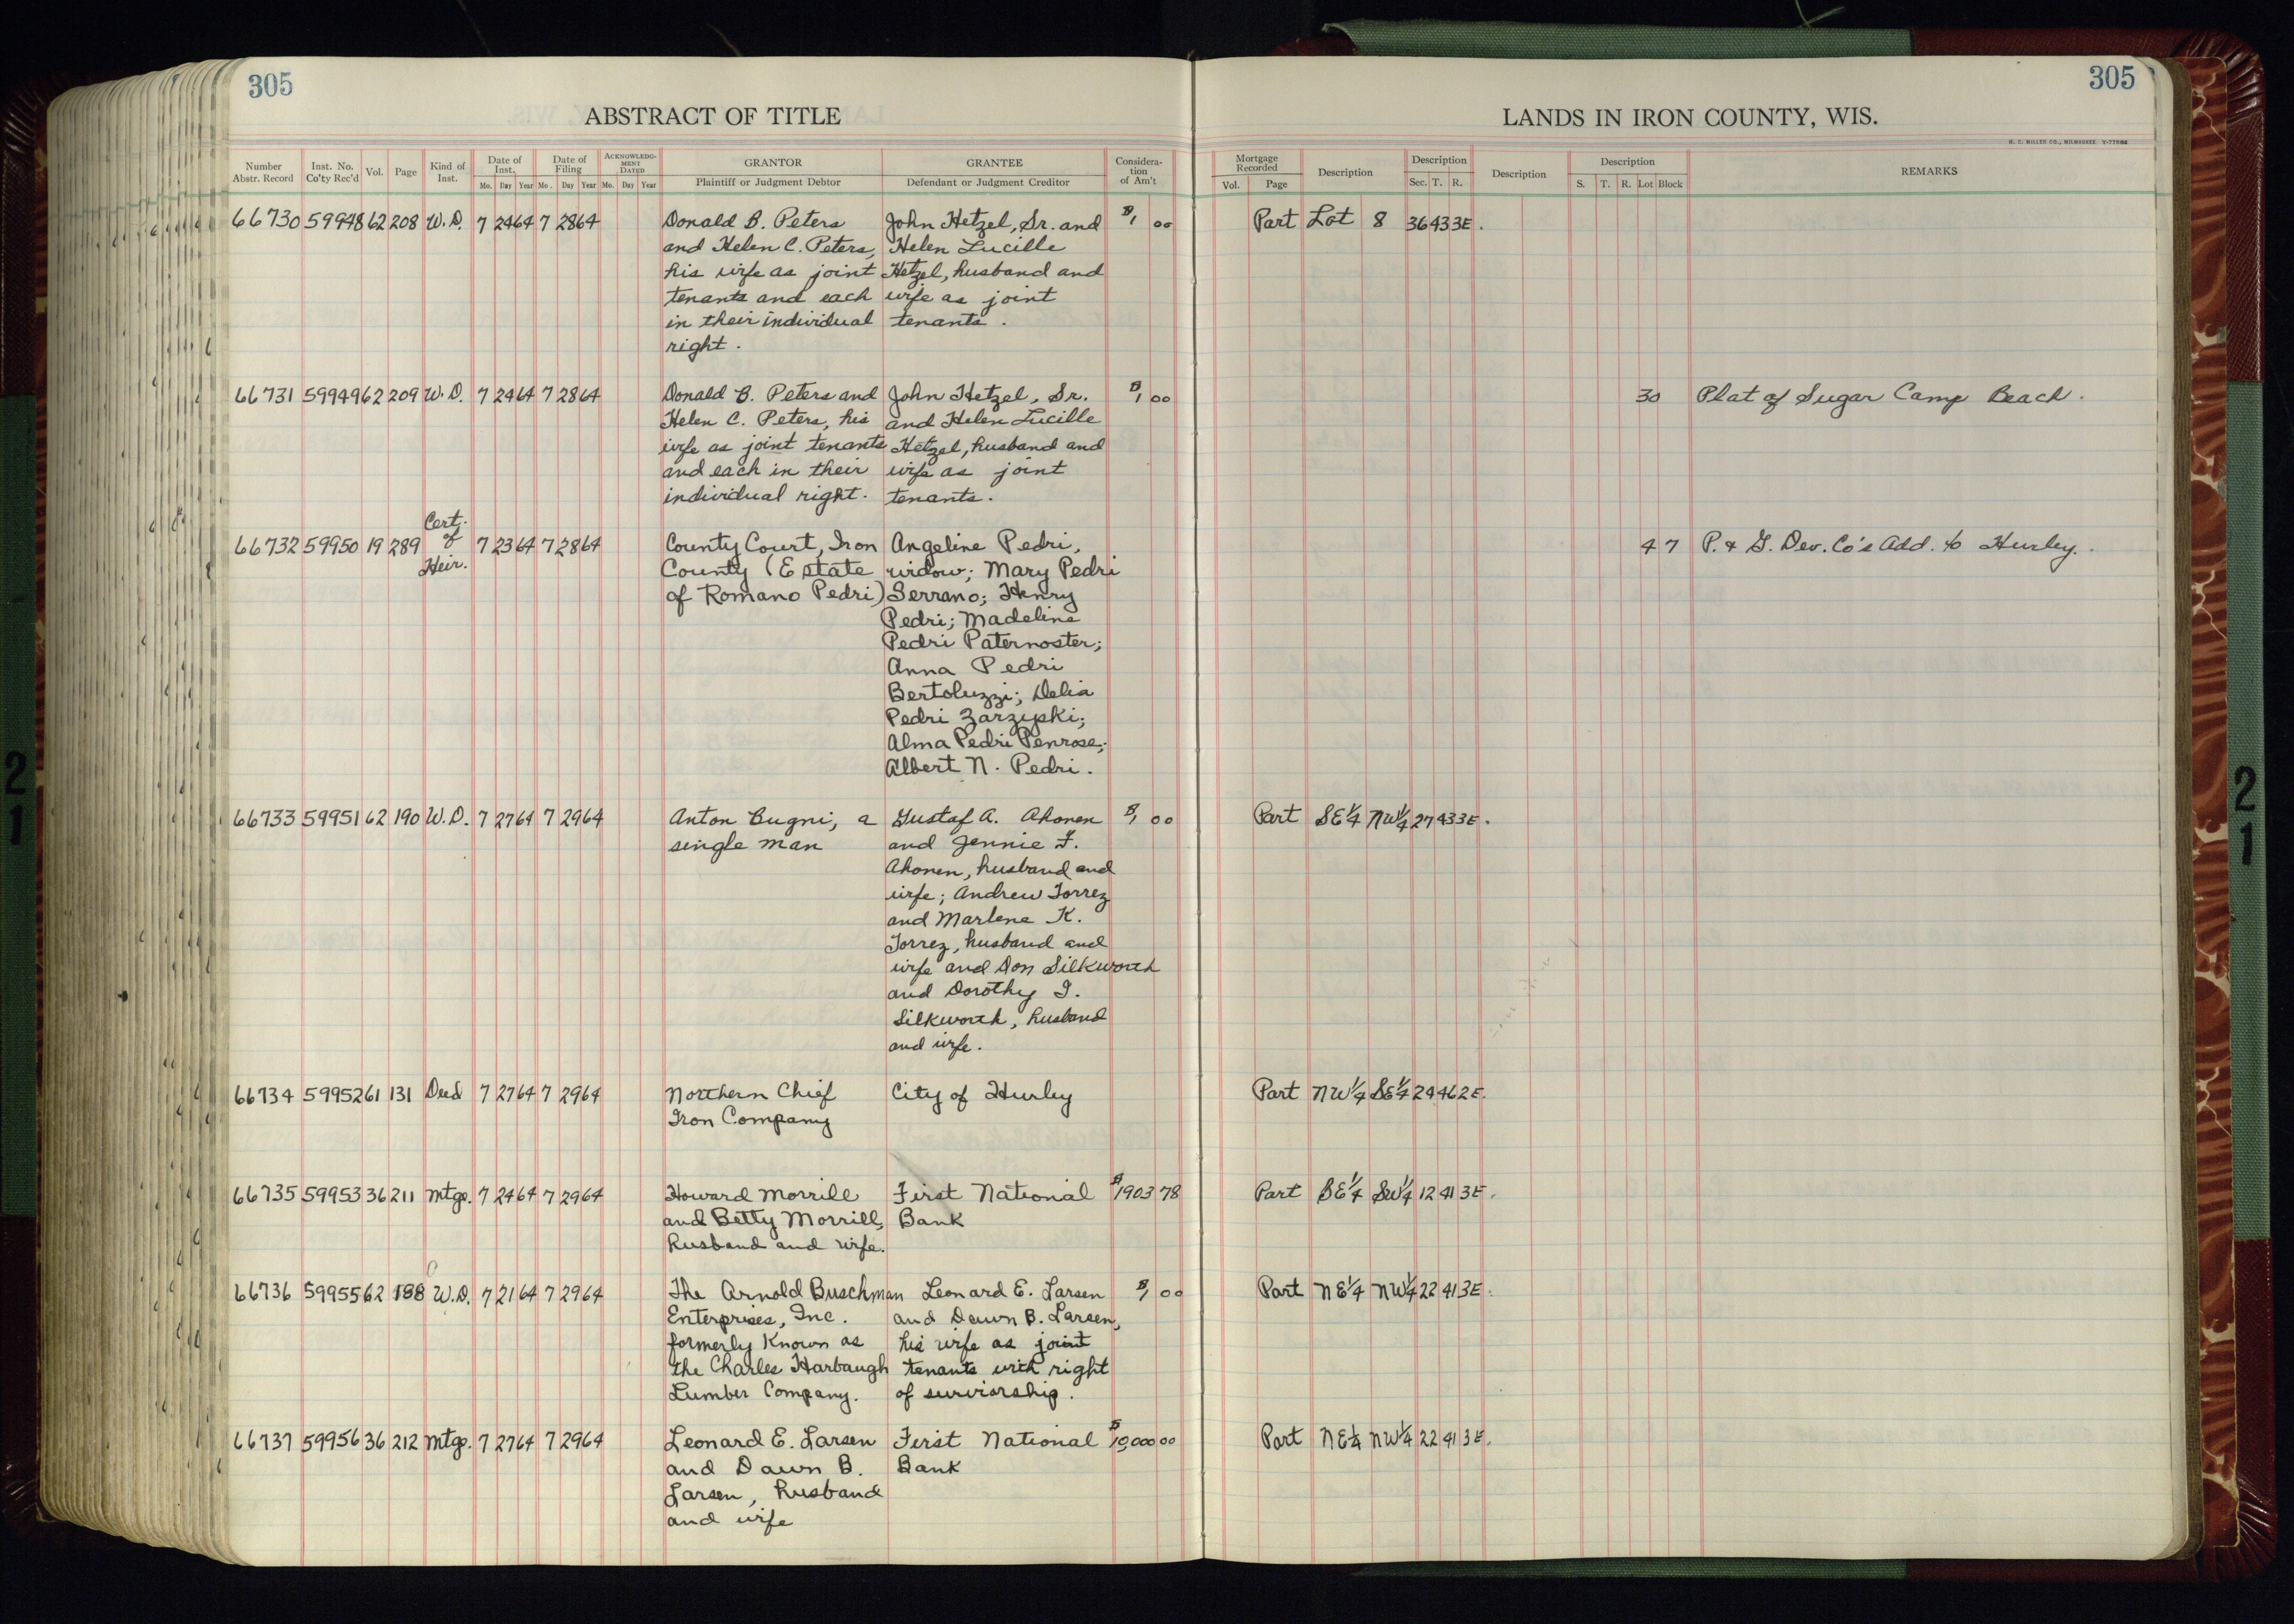 305
305
ABSTRACT OF TITLE
LANDS IN IRON COUNTY, WIS.
H. C. MILLER CO., MILWAUKEE
Number Abstr. Record
Inst. No. Co'ty Rec'd
Vol.
Page
Kind of Inst.
Date of Inst.
Mo. Day Year
Date of Filing
Mo. Day Year
ACKNOWLEDGMENT DATED
Mo. Day Year
GRANTOR
Plaintiff or Judgment Debtor
GRANTEE
Defendant or Judgment Creditor
Considera-
tion
of Am't
Mortgage Recorded
Vol. Page
Description
Description
Sec. T. R.
Description
Description
S. T. R. Lot Block
REMARKS
66730 59948 62 208 W.D. 7 24 64 7 28 64 Donald B. Peters John Hetzel, Sr. and $1, 00 Part Lot 8 36 43 3E.
and Helen C. Peters, Helen Lucille
his wife as joint Hetzel, husband and
tenants and each wife as joint
in their individual tenants.
right.
66731 59949 62 209 W.D. 7 24 64 7 28 64 Donald B. Peters and John Hetzel, Sr. $1, 00 30 Plat of Sugar Camp Beach.
Helen C. Peters, his and Helen Lucille
wife as joint tenants Hetzel, husband and
and each in their wife as joint
individual right. tenants.
66732 59950 19 289 Cert. of Heir. 7 23 64 7 28 64 County Court, Iron Angeline Pedri, 4 7 P. & G. Dev. Co's Add. to Hurley.
County (Estate widow; Mary Pedri
of Romano Pedri) Serrano; Henry
Pedri; Madeline
Pedri Paternoster;
Anna Pedri
Bertoluzzi; Delia
Pedri Zarzyski;
Alma Pedri Penrose;
Albert N. Pedri.
66733 59951 62 190 W.D. 7 27 64 7 29 64 Anton Bugni, a Gustaf A. Ahonen $1, 00 Part SE¼ NW¼ 27 43 3E.
single man and Jennie F.
Ahonen, husband and
wife; Andrew Torrez
and Marlene K.
Torrez, husband and
wife and Don Silkworth
and Dorothy I.
Silkworth, husband
and wife.
66734 59952 61 131 Deed 7 27 64 7 29 64 Northern Chief City of Hurley Part NW¼ SE¼ 24 46 2E.
Iron Company
66735 59953 36 211 Mtge. 7 24 64 7 29 64 Howard Morrill First National $1903 78 Part SE¼ SW¼ 12 41 3E.
and Betty Morrill, Bank
husband and wife.
66736 59955 62 188 W.D. 7 21 64 7 29 64 The Arnold Buschman Leonard E. Larsen $1, 00 Part NE¼ NW¼ 22 41 3E.
Enterprises, Inc. and Dawn B. Larsen,
formerly Known as his wife as joint
the Charles Harbaugh tenants with right
Lumber Company. of surviorship.
66737 59956 36 212 Mtge. 7 27 64 7 29 64 Leonard E. Larsen First National $10,000 00 Part NE¼ NW¼ 22 41 3E.
and Dawn B. Bank
Larsen, husband
and wife
21
21